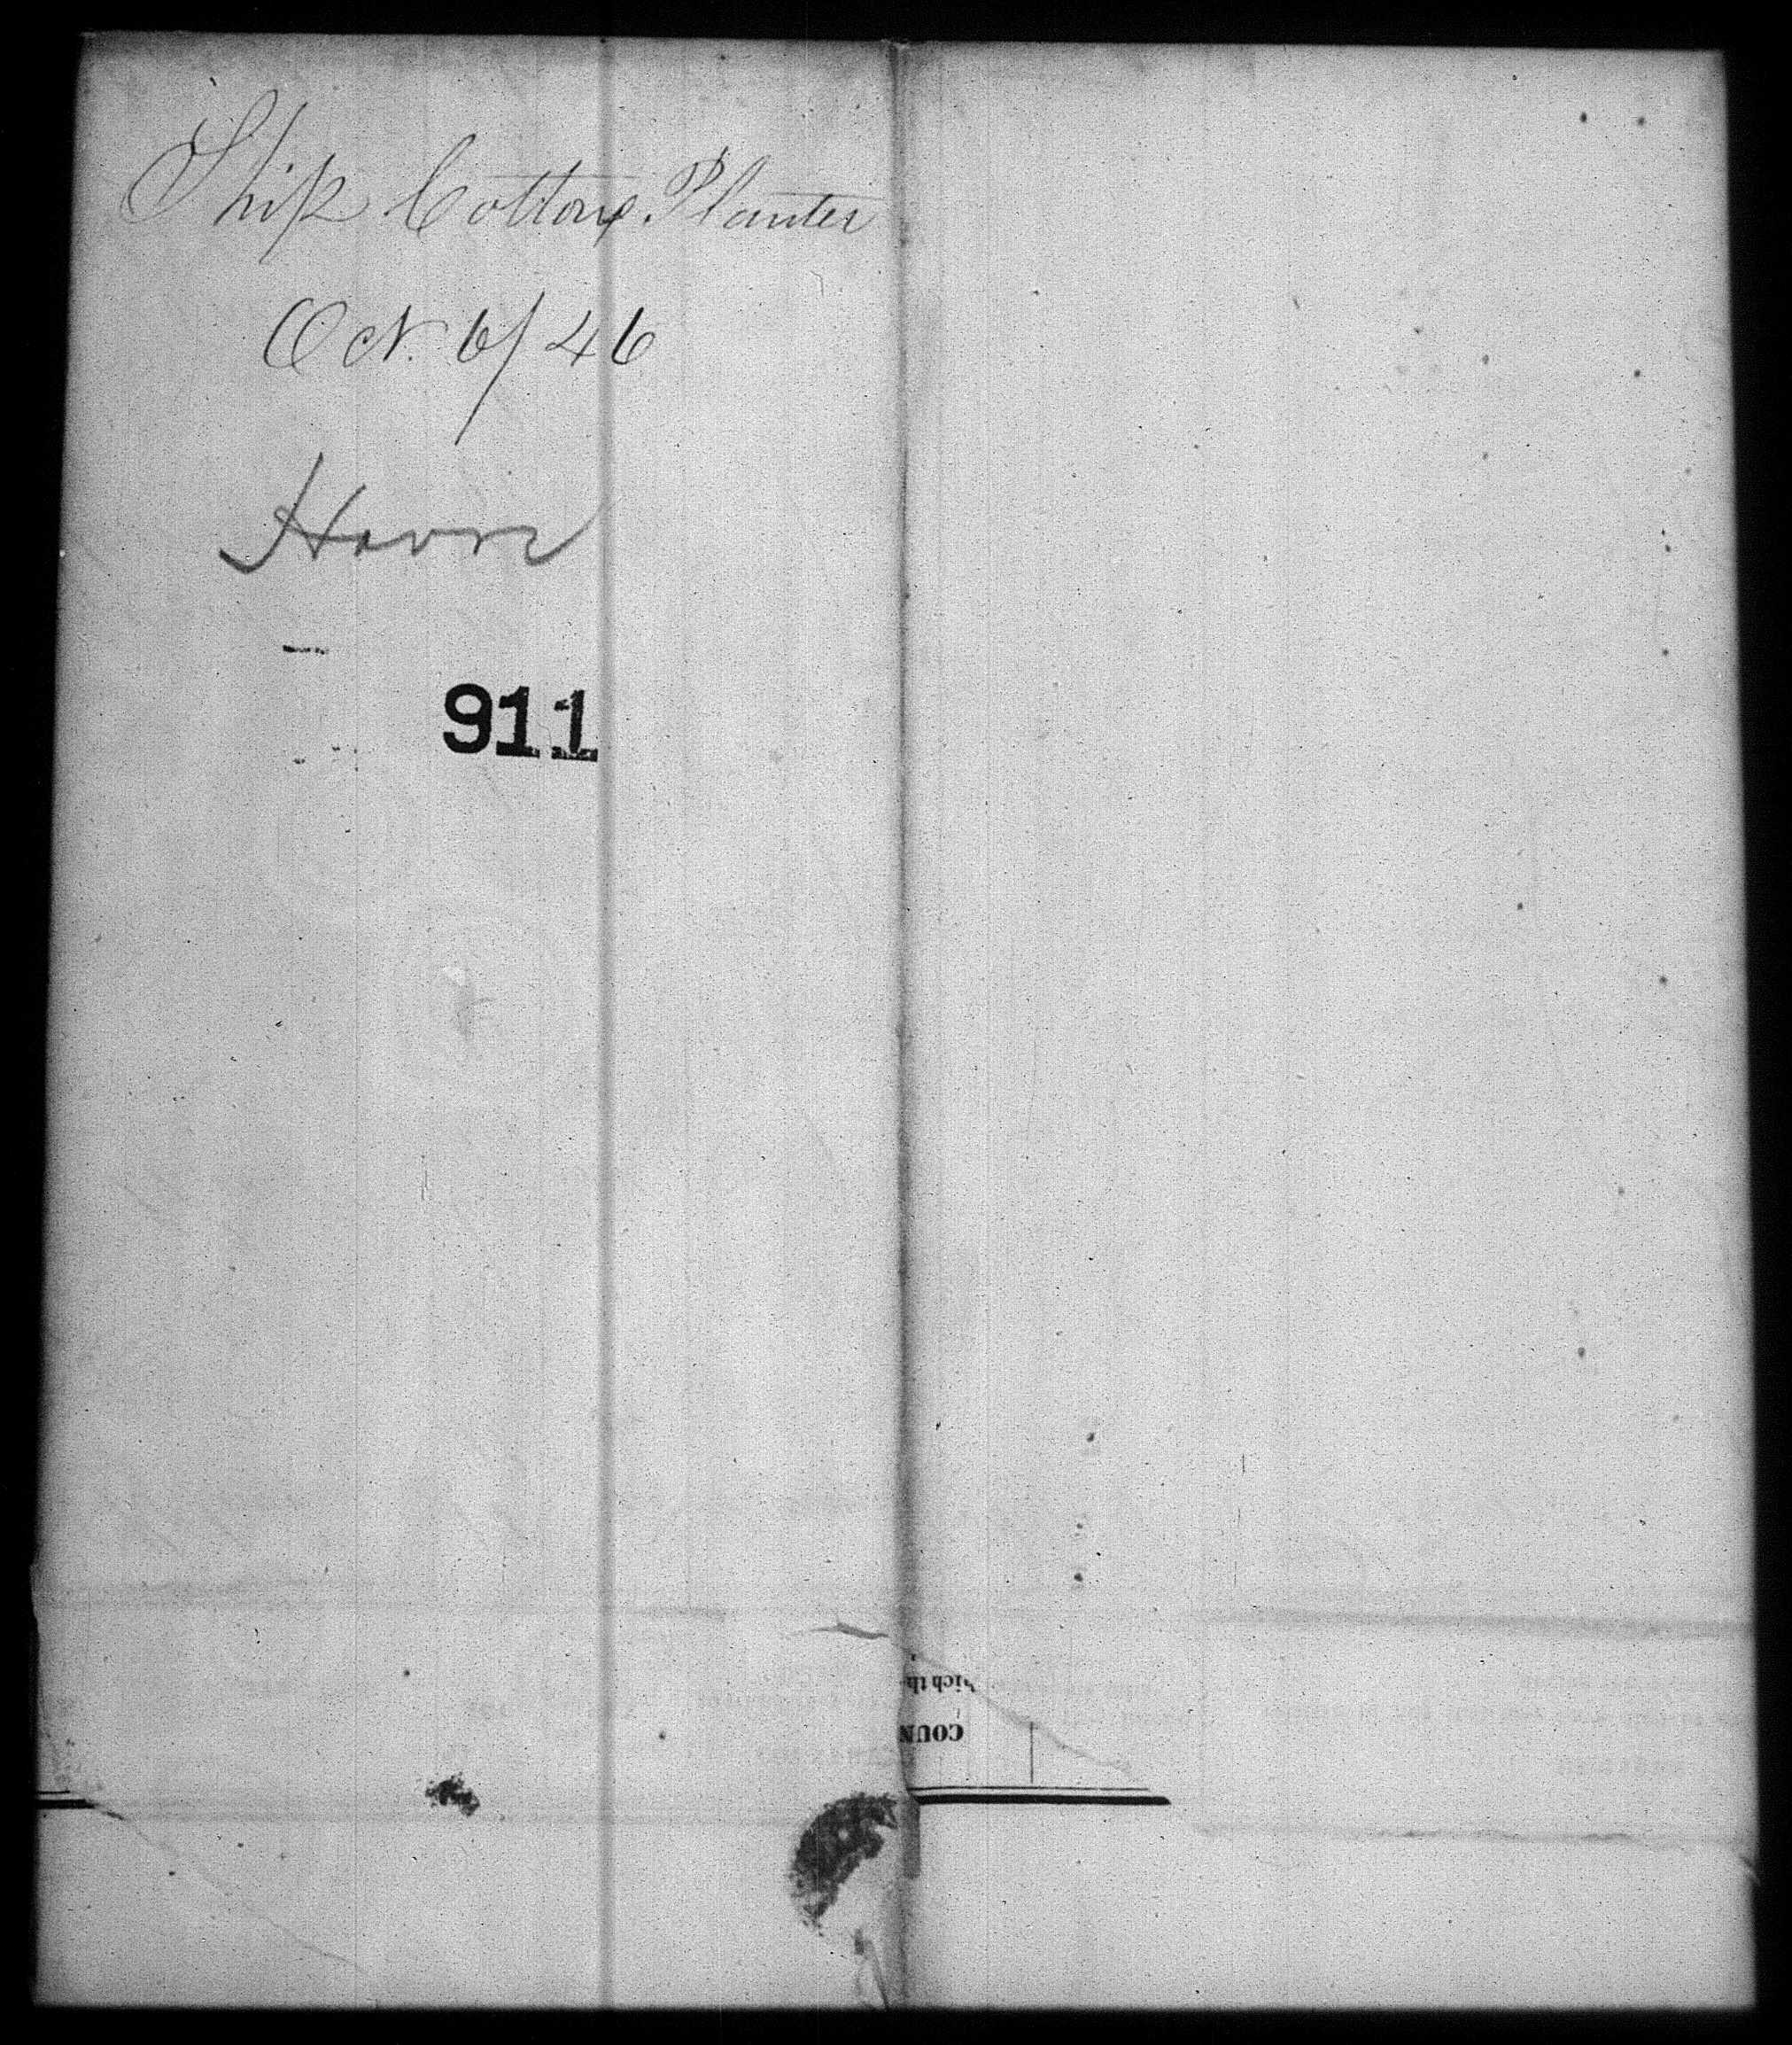 Ship Cotton Planter
Oct. 6/46
Havre
911
hich th
COUN